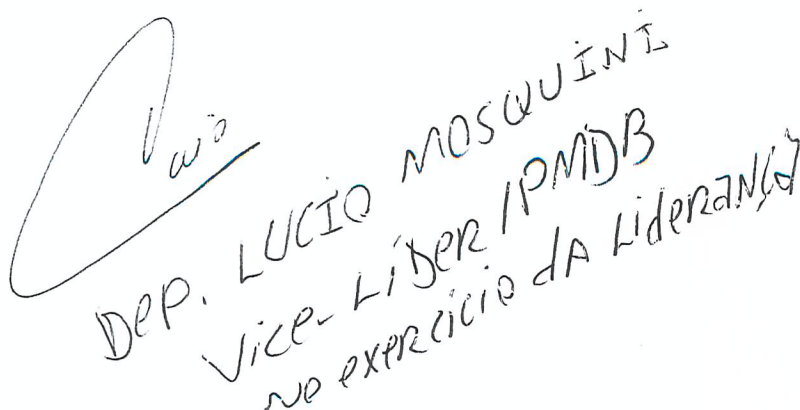 Dep. LUCIO MOSQUINI
Vice-LíDeR/PMDB
No exeRcício dA LideRANçA